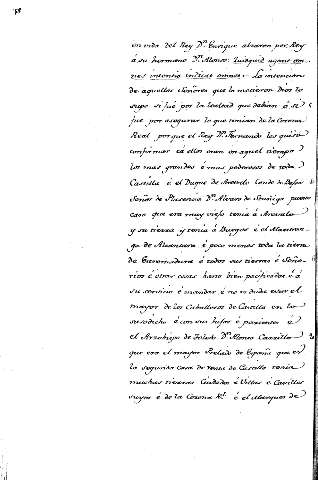 en vida del Rey Dn. Enrique alzaron por Rey
á su hermano Dn. Alonso: quidquid agant om-
nes intentio judicat omnes. La intencion
de aquellos clamores que la movieron Dios lo
supo si fué por la lealtad que debian ó si
fue por asegurar lo que tenian de la Corona
Real porque el Rey Dn. Fernando les quiso
confirmar cá ellos eran en aquel tiempo
los mas grandes é mas poderosos de toda
Castilla é el Duque de Arevalo Conde de
Señor de Plasencia Dn. Alvaro de Stuñiga puesto
caso que era muy viejo tenia á Arevalo
y su tierra y tenia á Burgos é el Maestraz-
go de Alcantara é poco menos toda la tierra
de Extremadura é todas sus tierras é Seño-
rios é otras casas harto bien pacificadas é á
su servicio é mandar é no se duda ser el
mayor de los Caballeros de Castilla en lo
susodicho é con sus hijos é parientes é
el Arzobispo de Toledo Dn. Alonso Carrillo
que era el mayor Prelado de España que es
la segunda casa de renta de Castilla tenia
muchas tierras Ciudades é Villas é Castillos
suyos é de la Corona Rl. é el Marques de